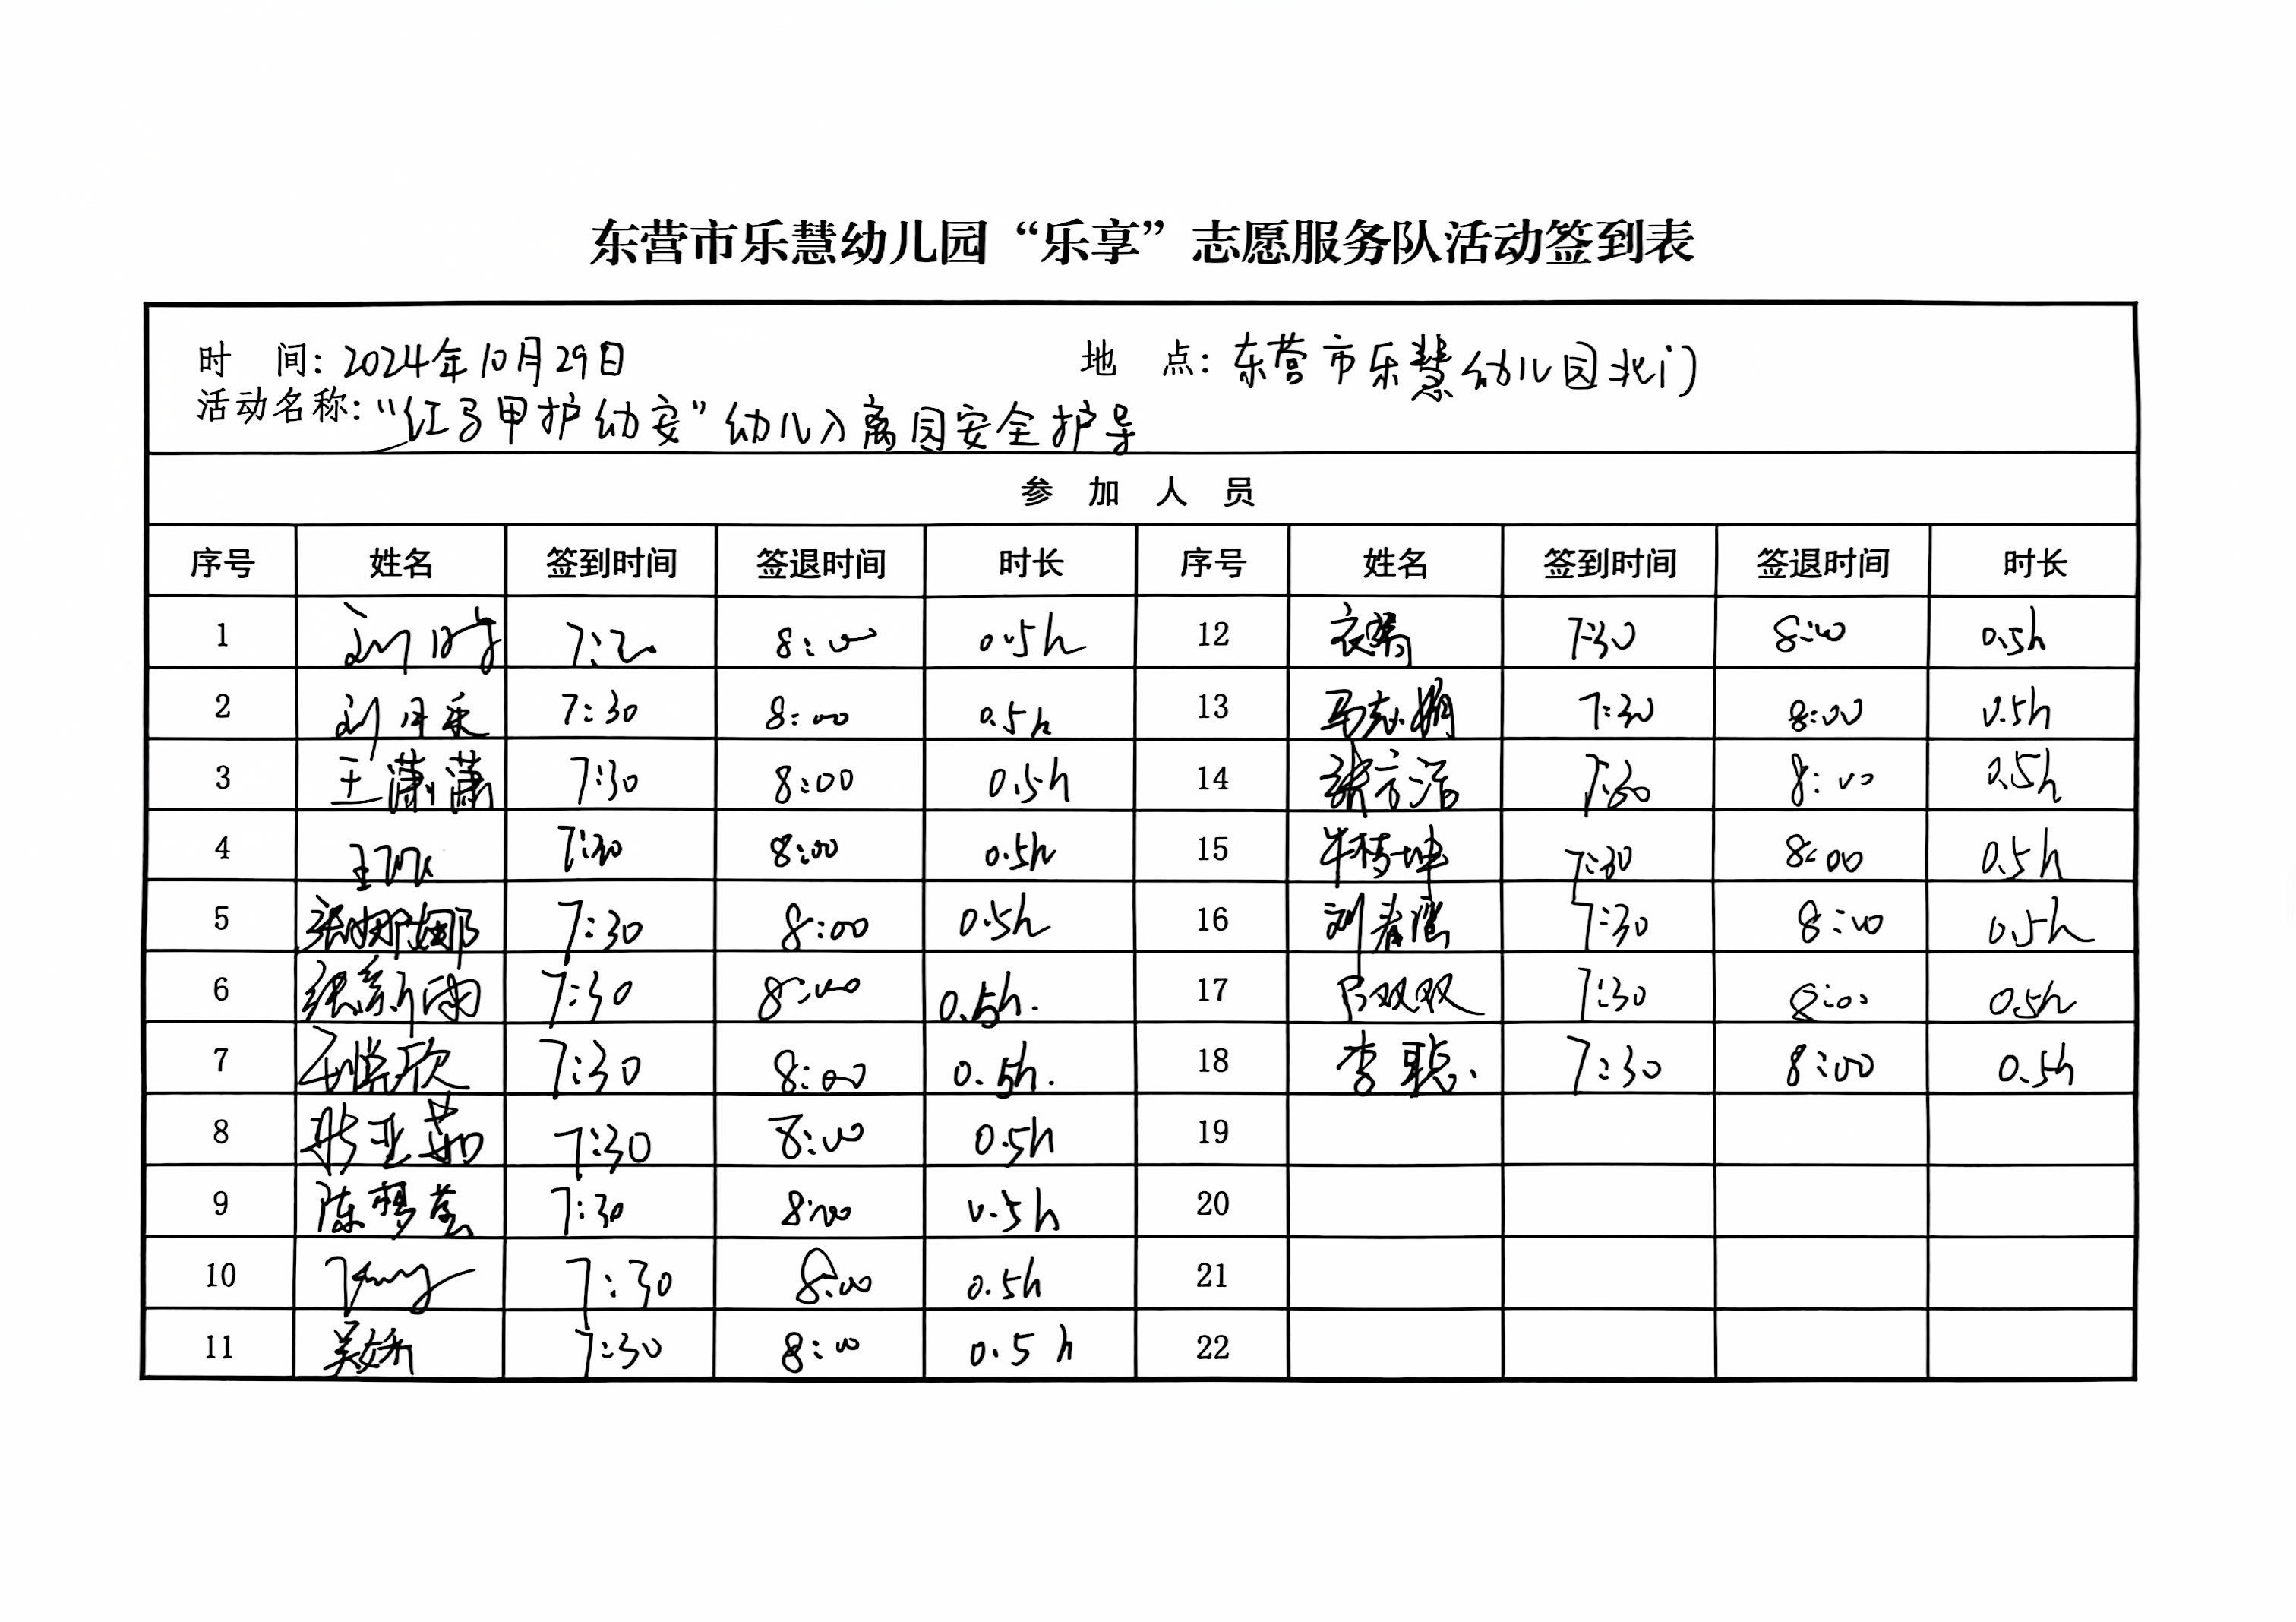 东营市乐慧幼儿园“乐享”志愿服务队活动签到表
时 间：2024年10月29日 地 点：东营市乐慧幼儿园北门
活动名称：“红马甲护幼安”幼儿入离园安全护导
参 加 人 员
序号 姓名 签到时间 签退时间 时长 序号 姓名 签到时间 签退时间 时长
1 刘 8:00 0.5h 12 衣 7:30 8:00 0.5h
2 刘月 7:30 8:00 0.5h 13 马志娟 7:30 8:00 0.5h
3 王潇潇 7:30 8:00 0.5h 14 张方洁 7:30 8:00 0.5h
4 王 7:30 8:00 0.5h 15 牛梅坤 7:30 8:00 0.5h
5 张娜娜 7:30 8:00 0.5h 16 刘春莺 7:30 8:00 0.5h
6 张新雨 7:30 8:00 0.5h. 17 双双 7:30 8:00 0.5h
7 悦欣 7:30 8:00 0.5h. 18 李聪 7:30 8:00 0.5h
8 亚茹 7:30 8:00 0.5h 19
9 陈梦莹 7:30 8:00 0.5h 20
10 7:30 8:00 0.5h 21
11 吴娇 7:30 8:00 0.5h 22